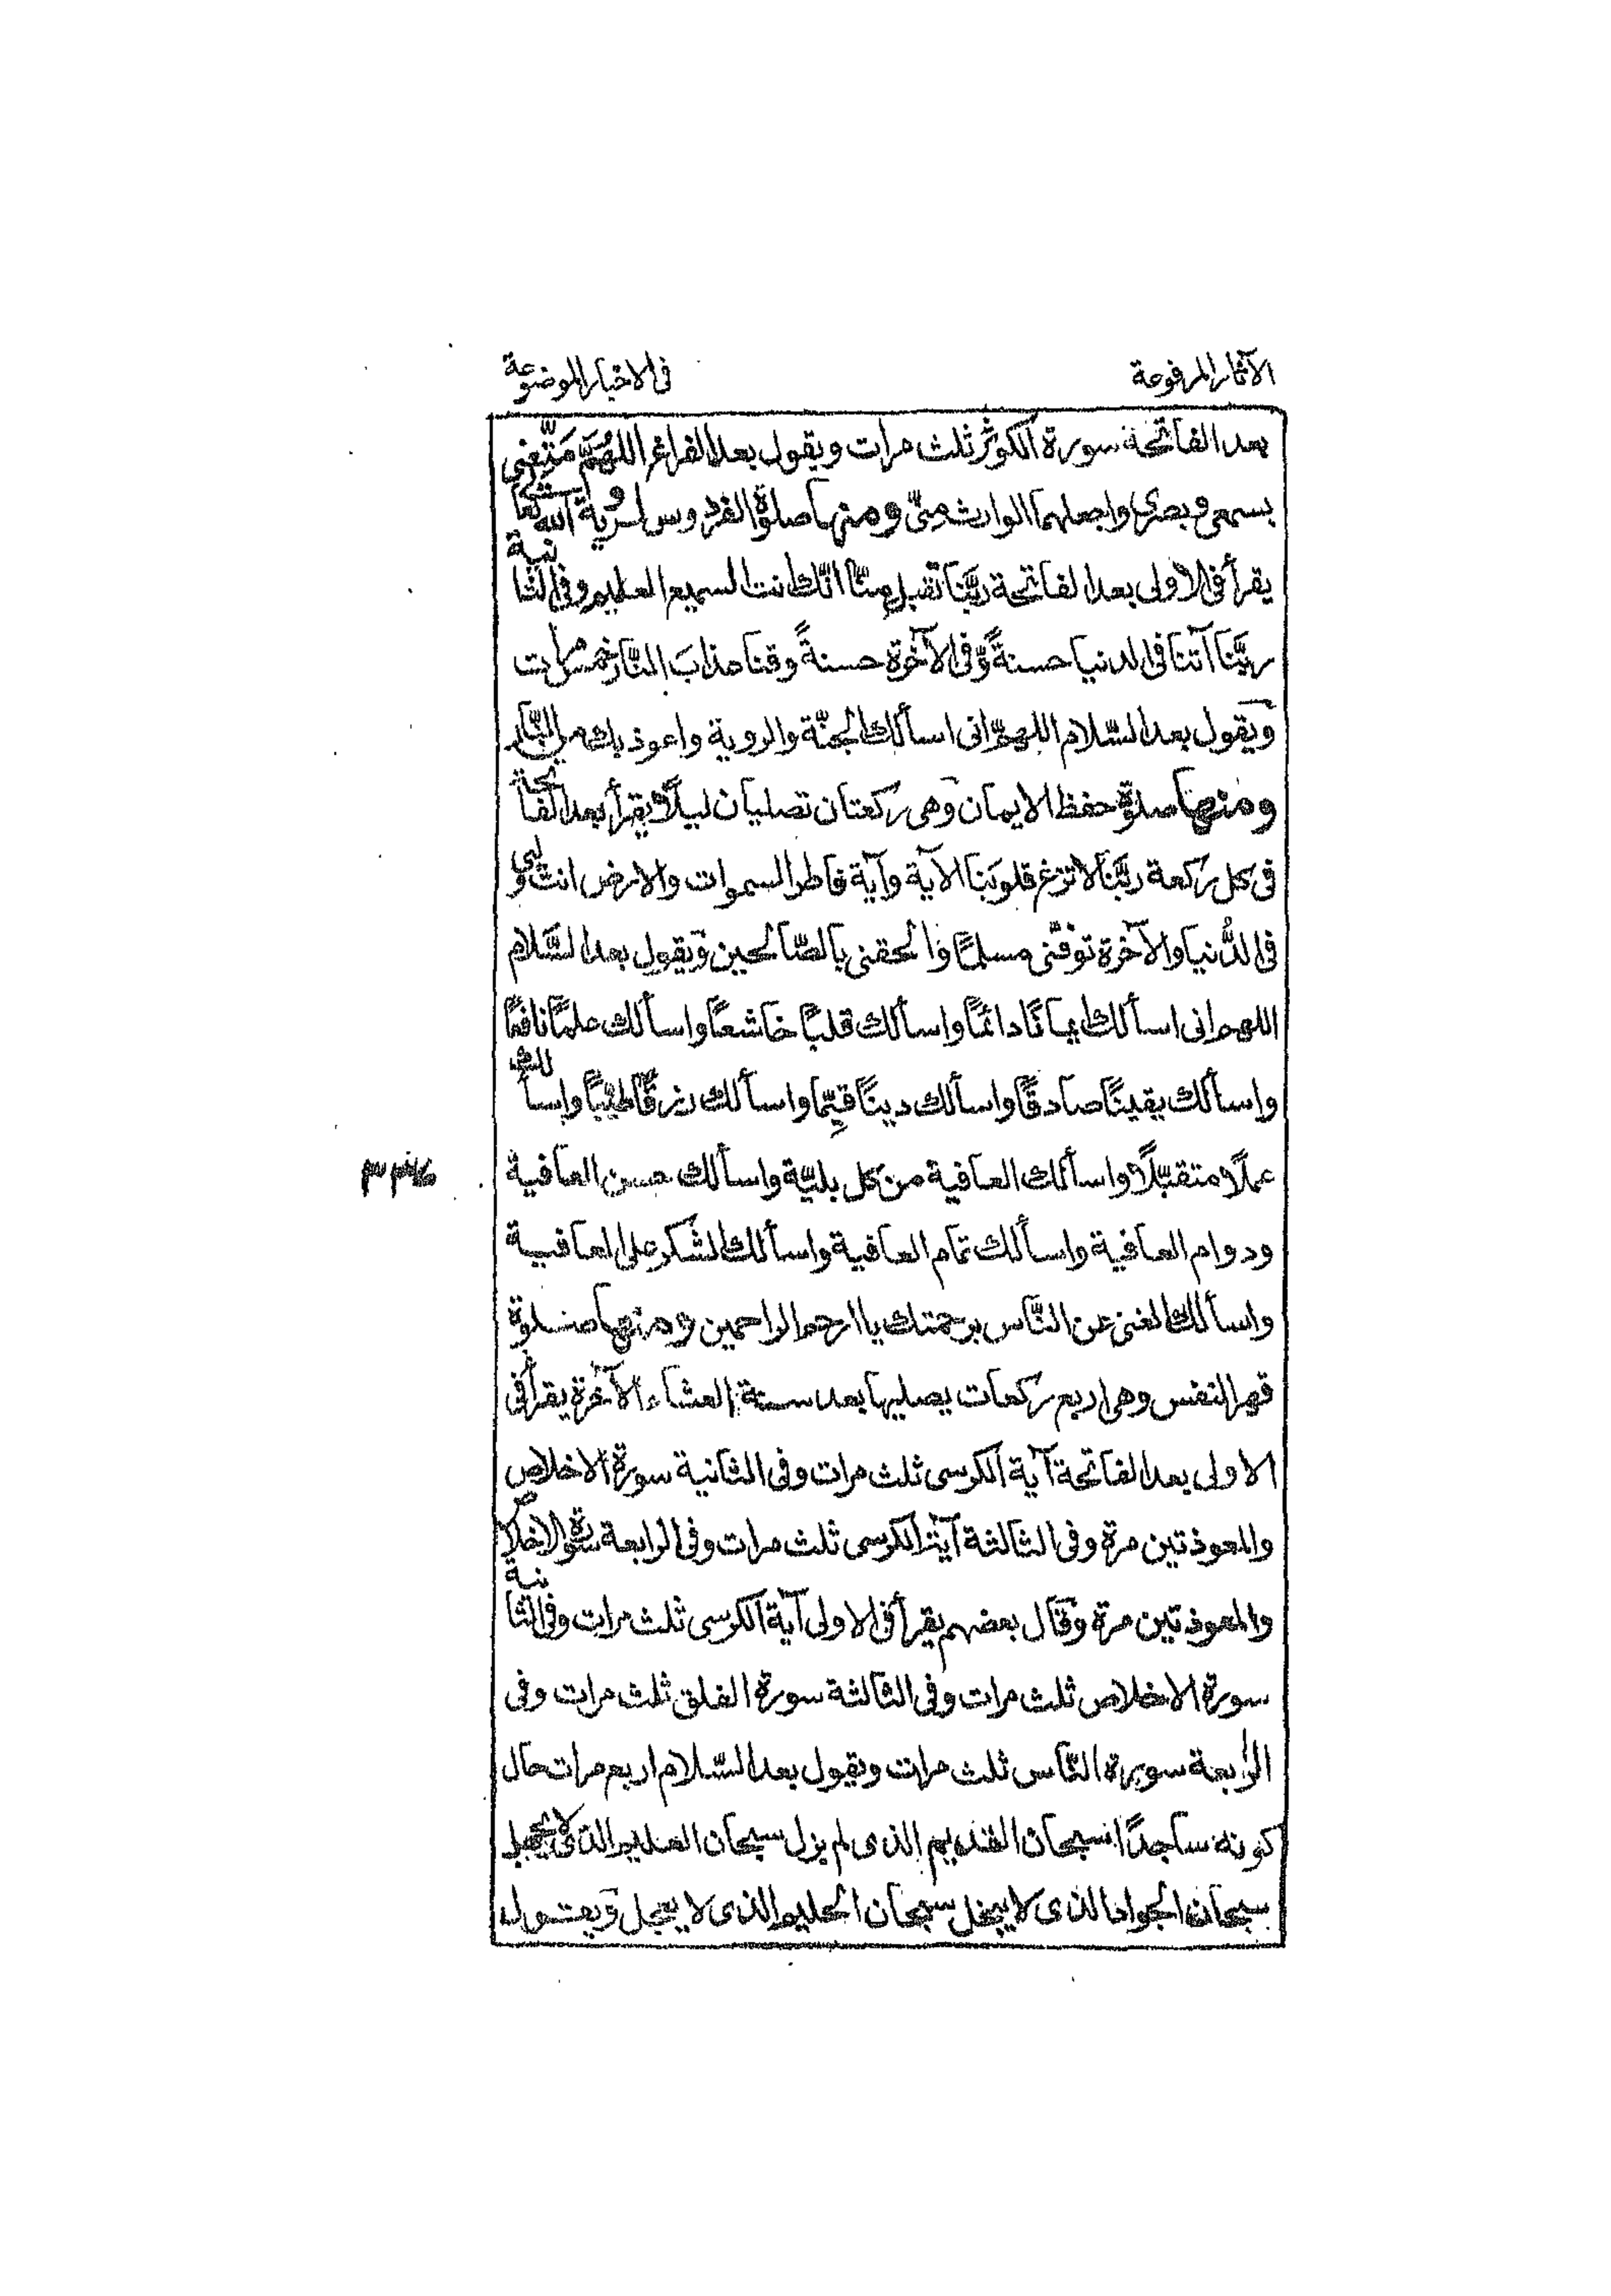 الآثار المرفوعة
فى الاخبار الموضوعة
بعد الفاتحة سورة الكوثر ثلث مرات ويقول بعد الفراغ اللهُمَّ مَتِّعْنِى
بسمعى وبصرى واجعلهما الوارث مِنّى ومنها صلوة الفردوس لرؤية الله تعالى
يقرأ فى الاولى بعد الفاتحة ربَّنا تقبل منّا انّك انت السميع العليم وفى الثانية
ربَّنا آتنا فى الدنيا حسنةً وّفى الآخرة حسنةً وقنا عذابَ النّار خمس مرات
ويقول بعد السّلام اللهمّ انى اسألك الجنّة والروية واعوذ بك من النّار
ومنها صلوة حفظ الايمان وهى ركعتان تصليان ليلًا ويقرأ بعد الفاتحة
فى كل ركعة ربَّنا لا تزغ قلوبَنا الآية وآية فاطر السموات والارض انت وليى
فى الدُّنيا والآخرة توفّنى مسلمًا وّالحقنى بالصّالحين ويقول بعد السَّلام
اللهم انى اسألك ايمانًا دائمًا واسألك قلبًا خاشعًا واسألك علمًا نافعًا
واسألك يقينًا صادقًا واسألك دينًا قيِّمًا واسألك رزقًا طيّبًا واسألك
عملًا متقبّلًا واسألك العافية من كل بليّة واسألك حسن العافية
ودوام العافية واسألك تمام العافية واسألك الشكر على العافية
واسألك الغنى عن النَّاس برحمتك يا ارحم الراحمين ومنها صلوة
قهر النفس وهى اربع ركعات يصليها بعد سنة العشاء الآخرة يقرأ فى
الاولى بعد الفاتحة آية الكرسى ثلث مرات وفى الثانية سورة الاخلاص
والمعوذتين مرة وفى الثالثة آية الكرسى ثلث مرات وفى الرابعة سورة الاخلاص
والمعوذتين مرة وقال بعضهم يقرأ فى الاولى آية الكرسى ثلث مرات وفى الثانية
سورة الاخلاص ثلث مرات وفى الثالثة سورة الفلق ثلث مرات وفى
الرابعة سورة النّاس ثلث مرات ويقول بعد السّلام اربع مرات حال
كونه ساجدًا سبحان القديم الذى لم يزل سبحان العليم الذى لا يجهل
سبحان الجواد الذى لا يبخل سبحان الحليم الذى لا يعجل ويقول